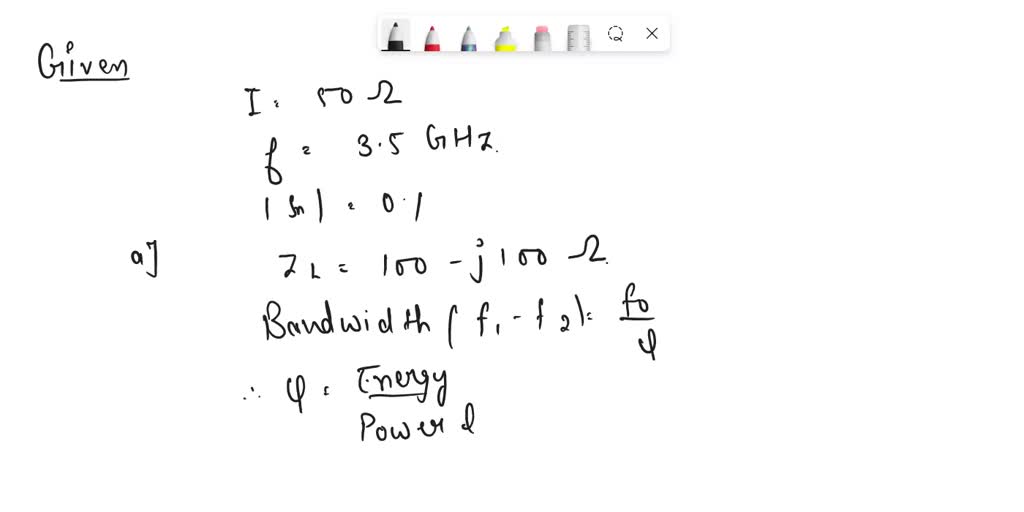 Given
I = 50 Ω
f = 3.5 GHz.
|Sn| = 0.1
a] ZL = 100 - j100 Ω.
Bandwidth (f1 - f2) = f0/φ
∴ φ = Energy
Power d